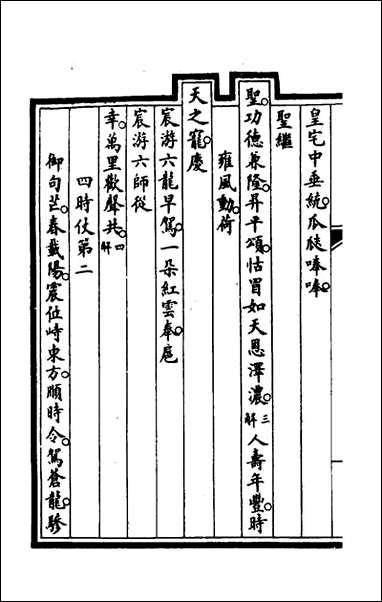 皇宅中垂統。瓜瓞唪唪。
聖繼
聖。功德兼隆。昇平頌。怙冒如天恩澤濃。三解人壽年豐。時
雍風動。荷
天之寵。慶
宸游六龍早駕。一朵紅雲奉。扈
宸游六師從
幸。萬里歡聲共。四解
四時仗第二
御句芒。春載陽。震位峙東方。順時令。駕蒼龍。驂